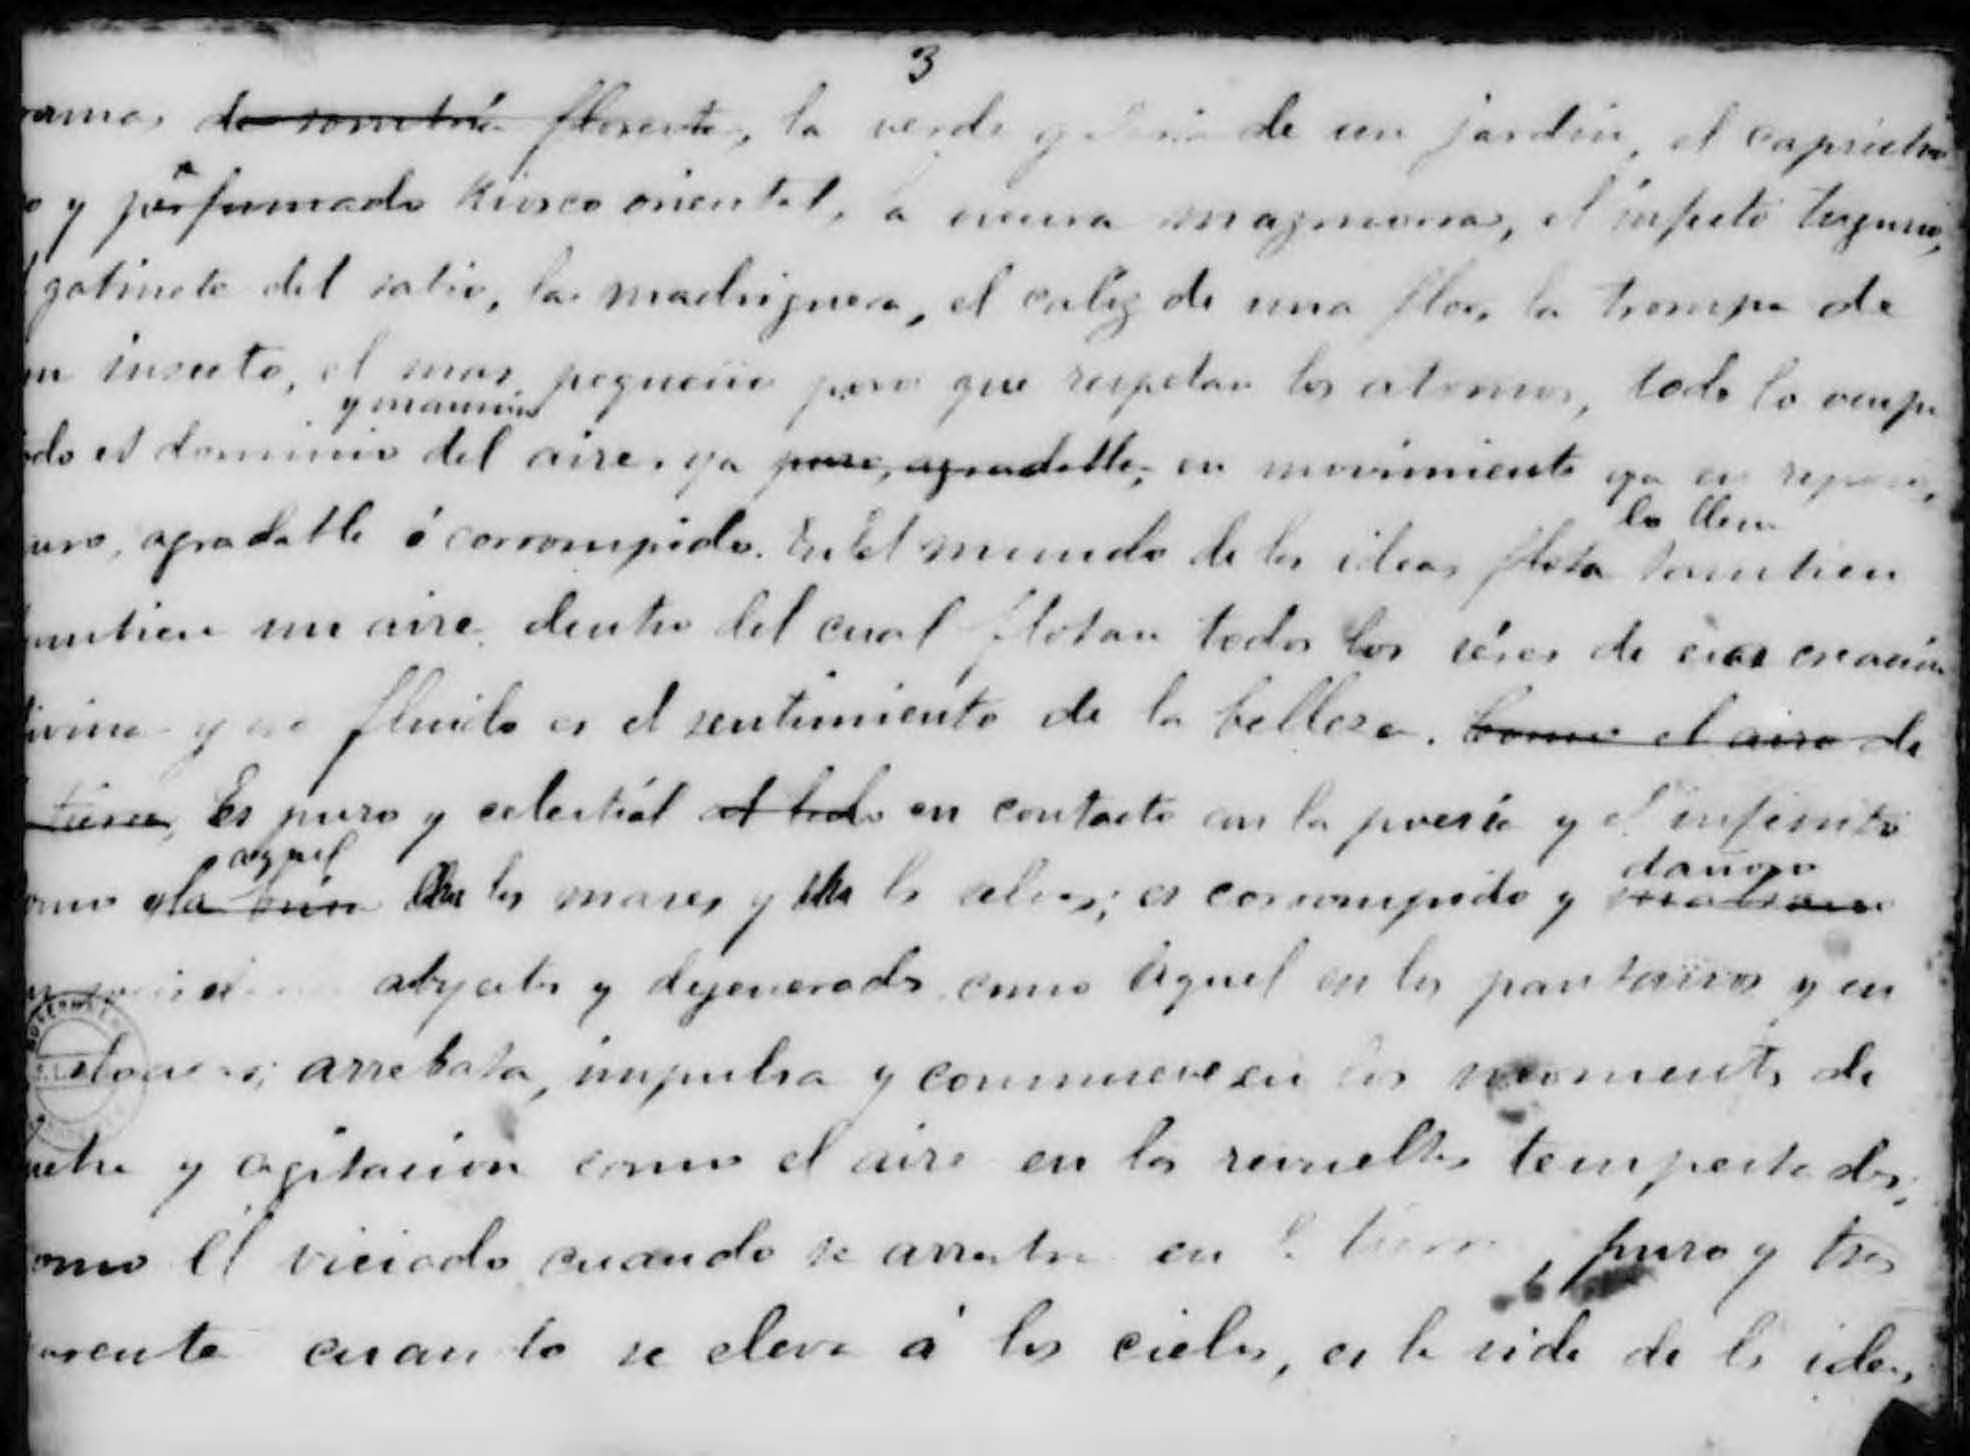 3
ramas de sombría floresta, la verde galeria de un jardin, el capricho
o y perfumado kiosco oriental, la oscura mazmorra, el infecto tugurio,
gabinete del sabio, la madriguera, el caliz de una flor, la trompa de
un insecto, el mas pequeño poro que respetan los atomos, todo lo ocupa
y mansion
todo es dominio del aire, ya puro, agradable, en movimiento ya en reposo,
puro, agradable ó corrompido. En el mundo de las ideas flota tambien
lo llena
tambien un aire dentro del cual flotan todos los séres de esa creación
divina y ese fluido es el sentimiento de la belleza. Como el aire de
tierra, Es puro y celestial al lado en contacto con la poesía y el infinito
como aquel la brisa en los mares y en las selvas; es corrompido y dañoso
abyectas y degeneradas como aquel en los pantanos y en
cloacas; arrebata, impulsa y conmueve en los momentos de
lucha y agitacion como el aire en las revueltas tempestades;
como él viciado cuando se arrastra en la tierra, puro y tras
parente cuando se eleva á los cielos, es la vida de las ideas,